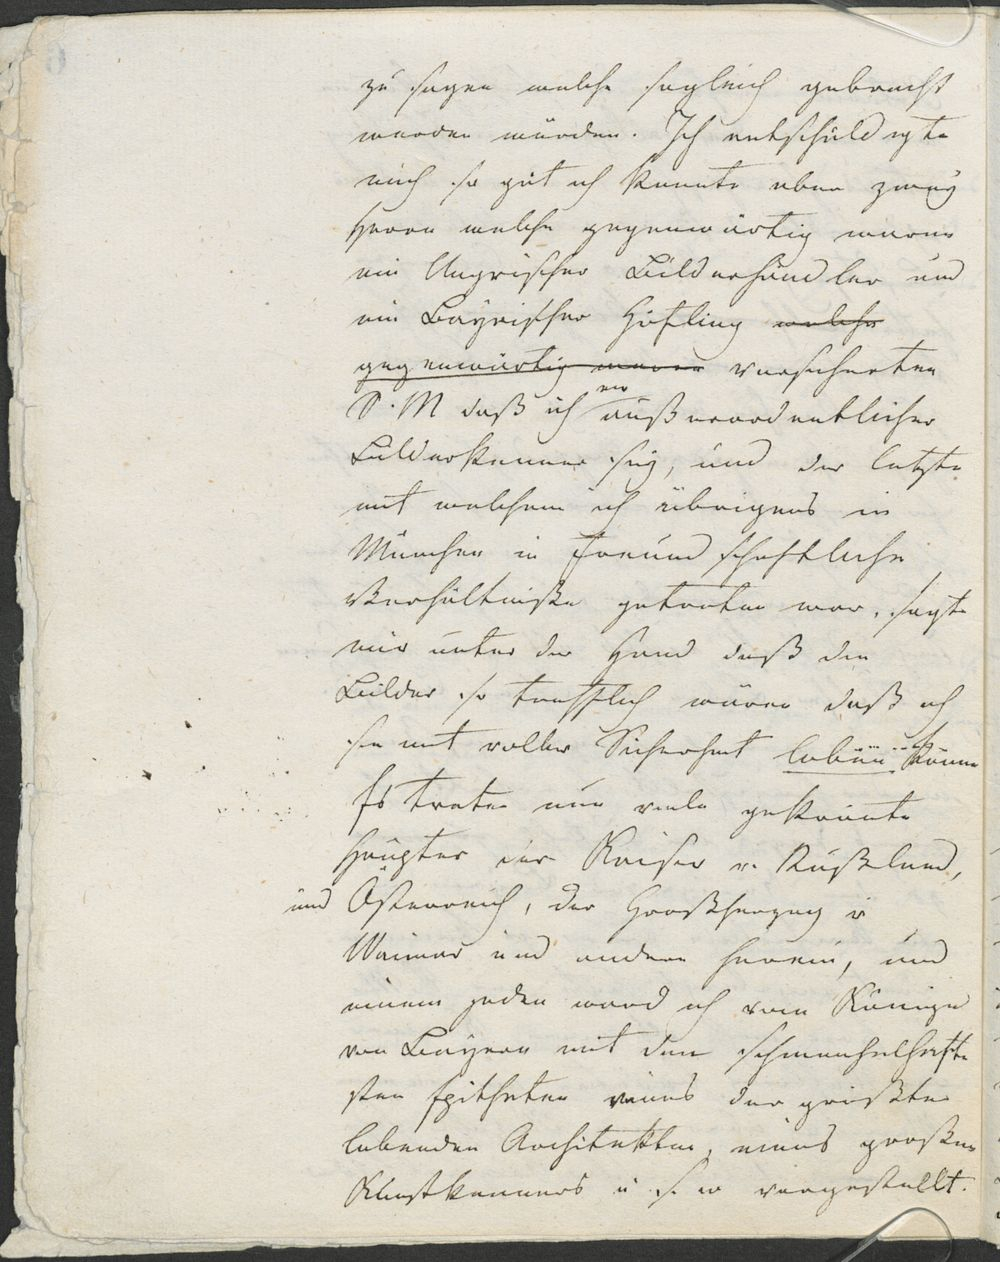 zu sagen welche sogleich gebracht
werden würden. Ich entschuldigte
mich so gut ich konnte aber zwey
Herrn welche gegenwärtig waren
ein Ungrischer Bilderhändler und
ein Bayrischer Höfling welche
gegenwärtig waren versicherten
S. M daß ich ein außerordentlicher
Bilderkenner sey, und der letzte
mit welchem ich übrigens in
München in freundschaftliche
Verhältniße getreten war, sagte
mir unter der Hand daß die
Bilder so trefflich wären daß ich
sie mit voller Sicherheit loben könne
Es traten nun viele gekrönte
Häupter der Kaiser v. Rußland,
und Österreich, der Großherzog v
Weimar und andere herein, und
einem jeden ward ich vom Könige
von Bayern mit den schmeichelhafte
sten Epitheten eines der größten
lebenden Architekten, eines großen
Kunstkenners u. s. w vorgestellt.